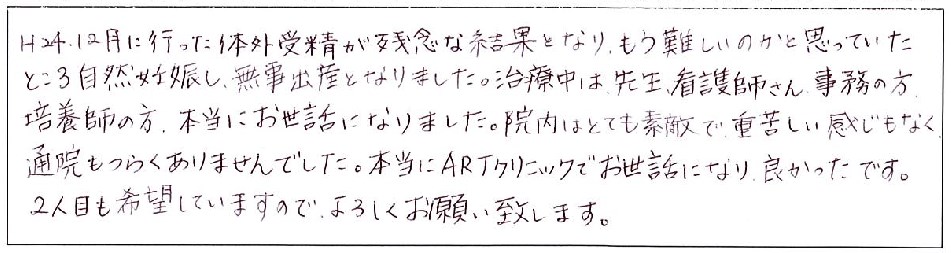 H24.12月に行った体外受精が残念な結果となり、もう難しいのかと思っていた
ところ自然妊娠し、無事出産となりました。治療中は、先生、看護師さん、事務の方、
培養師の方、本当にお世話になりました。院内はとても素敵で、重苦しい感じもなく、
通院もつらくありませんでした。本当にARTクリニックでお世話になり、良かったです。
2人目も希望していますので、よろしくお願い致します。